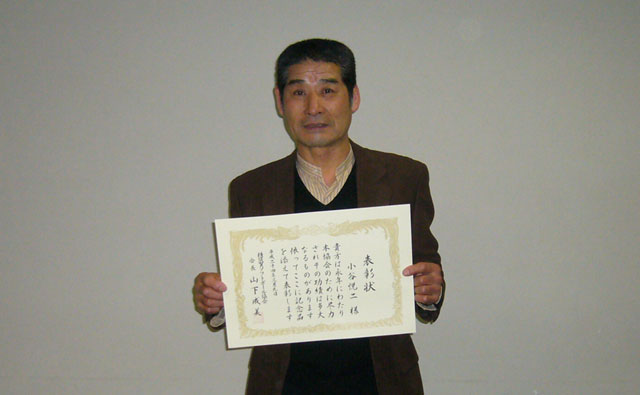 表彰状
小谷悦二 様
貴方は永年にわたり
本協会のために尽力
されその功績は多大
なるものがあります
依ってここに記念品
を添えて表彰します
会長 山下成美